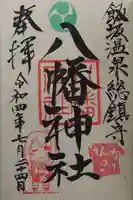 飯坂温泉總鎮守
八幡神社
奉拝
令和四年七月二四日